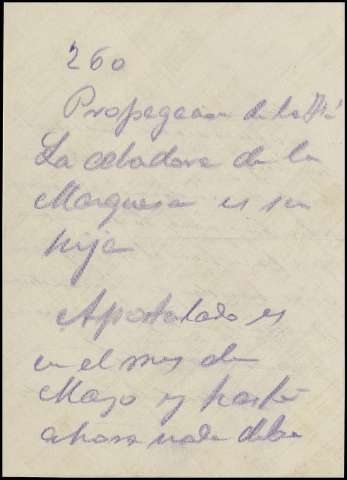 260
Propagacion de la Fé
La celadora de la
Marquesa es su
hija
Apostolado es
en el mes de
Mayo y hasta
ahora nada debe